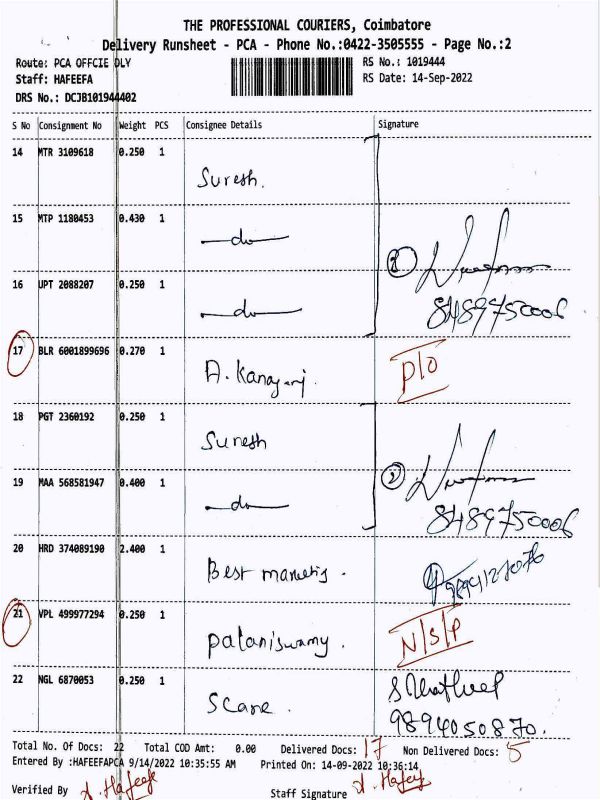 THE PROFESSIONAL COURIERS, Coimbatore
Delivery Runsheet - PCA - Phone No.:0422-3505555 - Page No.:2
Route: PCA OFFCIE DLY
RS No.: 1019444
Staff: HAFEEFA
RS Date: 14-Sep-2022
DRS No.: DCJB101944402
S No Consignment No Weight PCS Consignee Details Signature
14 MTR 3109618 0.250 1
Suresh.
15 MTP 1180453 0.430 1
—do—
3
16 UPT 2088207 0.250 1
—do—
8489750006
17 BLR 6001899696 0.270 1
A. Kanagaraj. D/O
18 PGT 2360192 0.250 1
Suresh
2
19 MAA 568581947 0.400 1
—do—
8489750006
20 HRD 374089190 2.400 1
Best marketing .
21 VPL 499977294 0.250 1
Palaniswamy. N/S/P
22 NGL 6870053 0.250 1
Scane .
9894050870.
Total No. Of Docs: 22 Total COD Amt: 0.00 Delivered Docs: 17 Non Delivered Docs: 5
Entered By :HAFEEFAPCA 9/14/2022 10:35:55 AM Printed On: 14-09-2022 10:36:14
Verified By A. Hafeefa Staff Signature A. Hafeefa